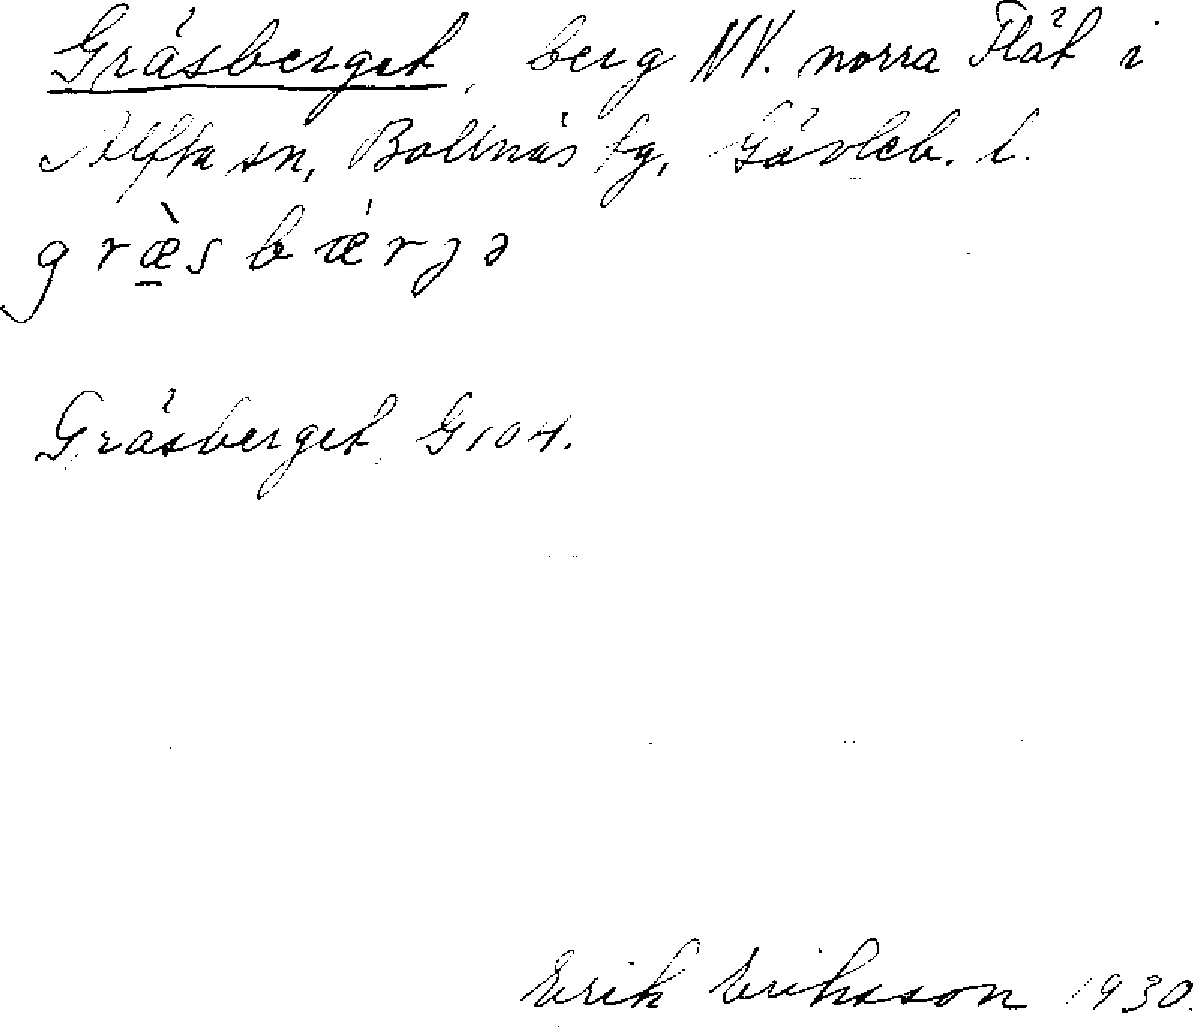 Gräsberget, berg NV. norra Flät i
Alfta sn, Bollnäs tg, Gävleb. l.
græ̀sbǽrjə
Gräsberget G 104.
Erik Eriksson 1930.